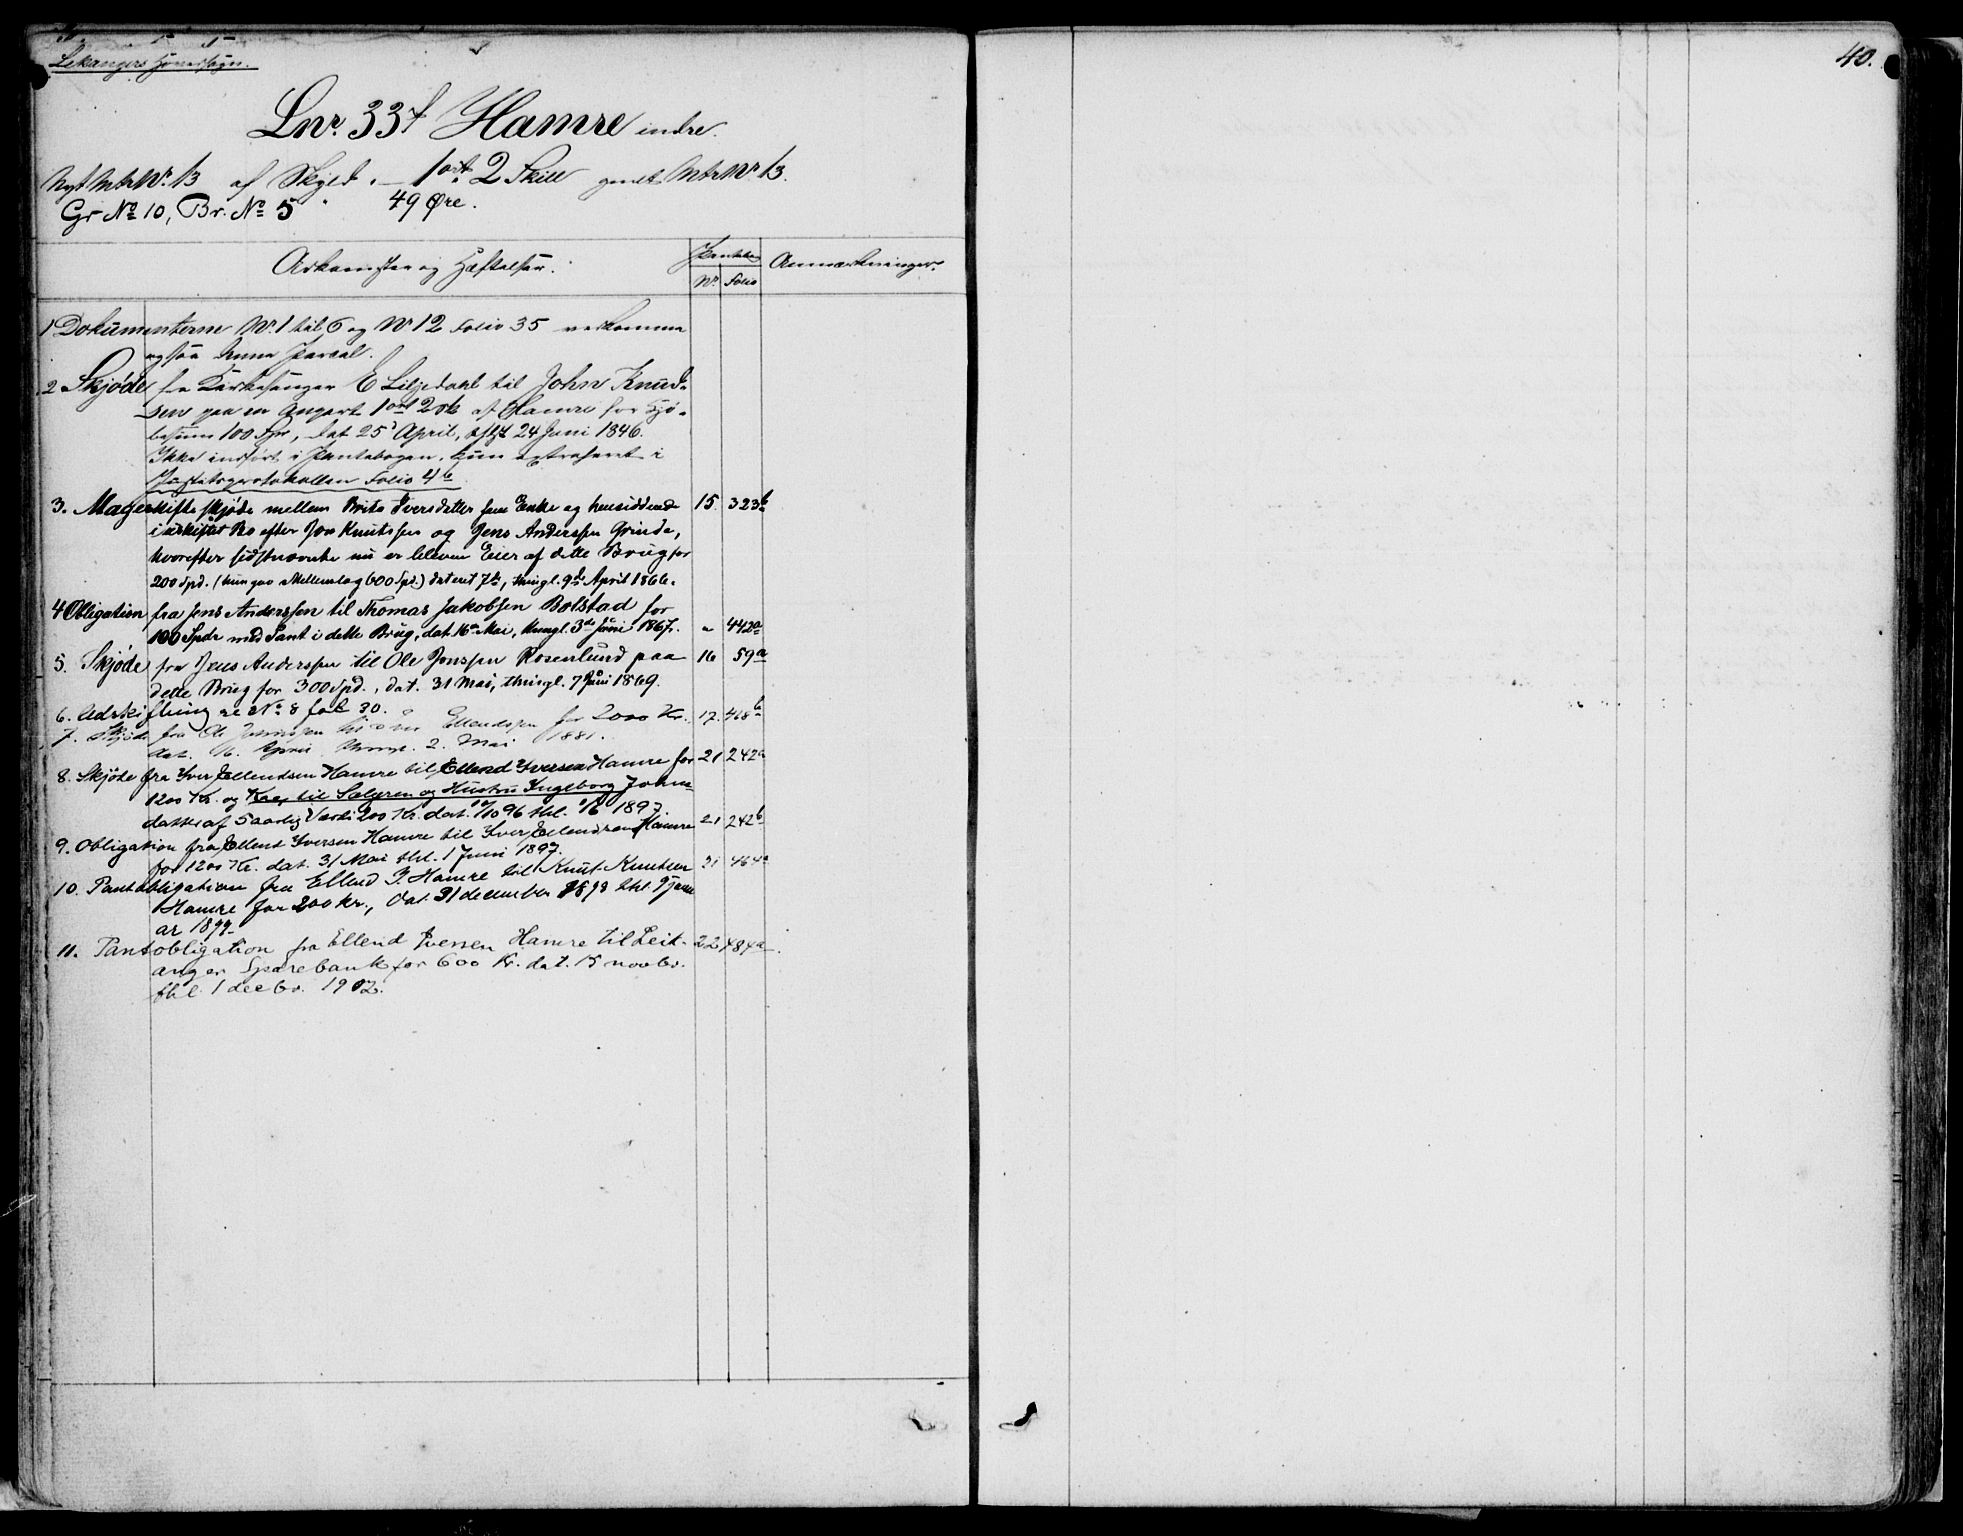 Lekangers Hovedsogn.
40.
Lnr. 33f Hamre indre.
Nyt Mtr Nr. 13 af Skyld. — 1 ort 2 Skill gmlt Mtr Nr 13.
Gr No 10, Br. No 5 " 49 Øre.
Adkomster og Hæftelser.
Pantebog
Anmærkninger.
Nr. Folio
1 Dokumenterne Nr. 1 til 6 og Nr 12 Folio 35 vedkomme
ogsaa denne Parcel.
2 Skjøde fra Kirkesanger E Liljedahl til John Knud-
sen paa en Anpart 1 ort 2 sk af Hamre for Kjø-
besum 100 Spd, dat 25d April, 24 Juni 1846.
Ikke indført i Pantebogen, kun extraheret i
Folio 4b
3. Mageskifteskjøde mellem Brita Iversdatter som Enke og hensiddende 15. 323b
i uskiftet Bo efter Jon Knutssen og Jens Anderssen Grinde,
hvorefter sidstnævnte nu er bleven Eier af dette Brug for
200 Spd. (hun gav Mellemlag 600 Spd.) dateret 7de, thingl. 9de April 1866.
4 Obligation fra Jens Anderssen til Thomas Jakobsen Bolstad for
100 Spdr med Pant i dette Brug, dat. 16de Mai, thingl. 3de Juni 1867. " 442a
5. Skjøde fra Jens Anderssen til Ole Jonssen Rosenlund paa 16 59a
dette Brug for 300 Spd., dat. 31 Mai, thingl. 7 Juni 1869.
6. Udskiftning se No 8 fol 30.
7. Skjøde fra Ole Ellendssen for 2000 Kr. 17. 468b
dat. 16. April thingl. 2. Mai 1881.
8. Skjøde fra Iver Ellendsen Hamre til Ellend Iversen Hamre for 21 242a
1200 Kr. og Kaar til Sælgeren og Hustru Ingeborg Johns-
datter af 5 aarlig Værdi 200 Kr. dat. 96 thl. 1/6 1897.
9. Obligation fra Ellend Iversen Hamre til Iver Ellendsen Hamre 21 242b
for 1200 Kr. dat. 31 Mai thl. 1 Juni 1897.
10. Pantobligation fra Ellend I. Hamre til Knut Knutsen 21 464a
Hamre for 200 kr., dat. 31 december 1898 thl. 9 janu
ar 1899.
11. Pantobligation fra Ellend Iversen Hamre til Leik- 22 484a
anger Sparebank for 600 Kr. dat. 15 novbr.
thl. 1 decbr. 1902.